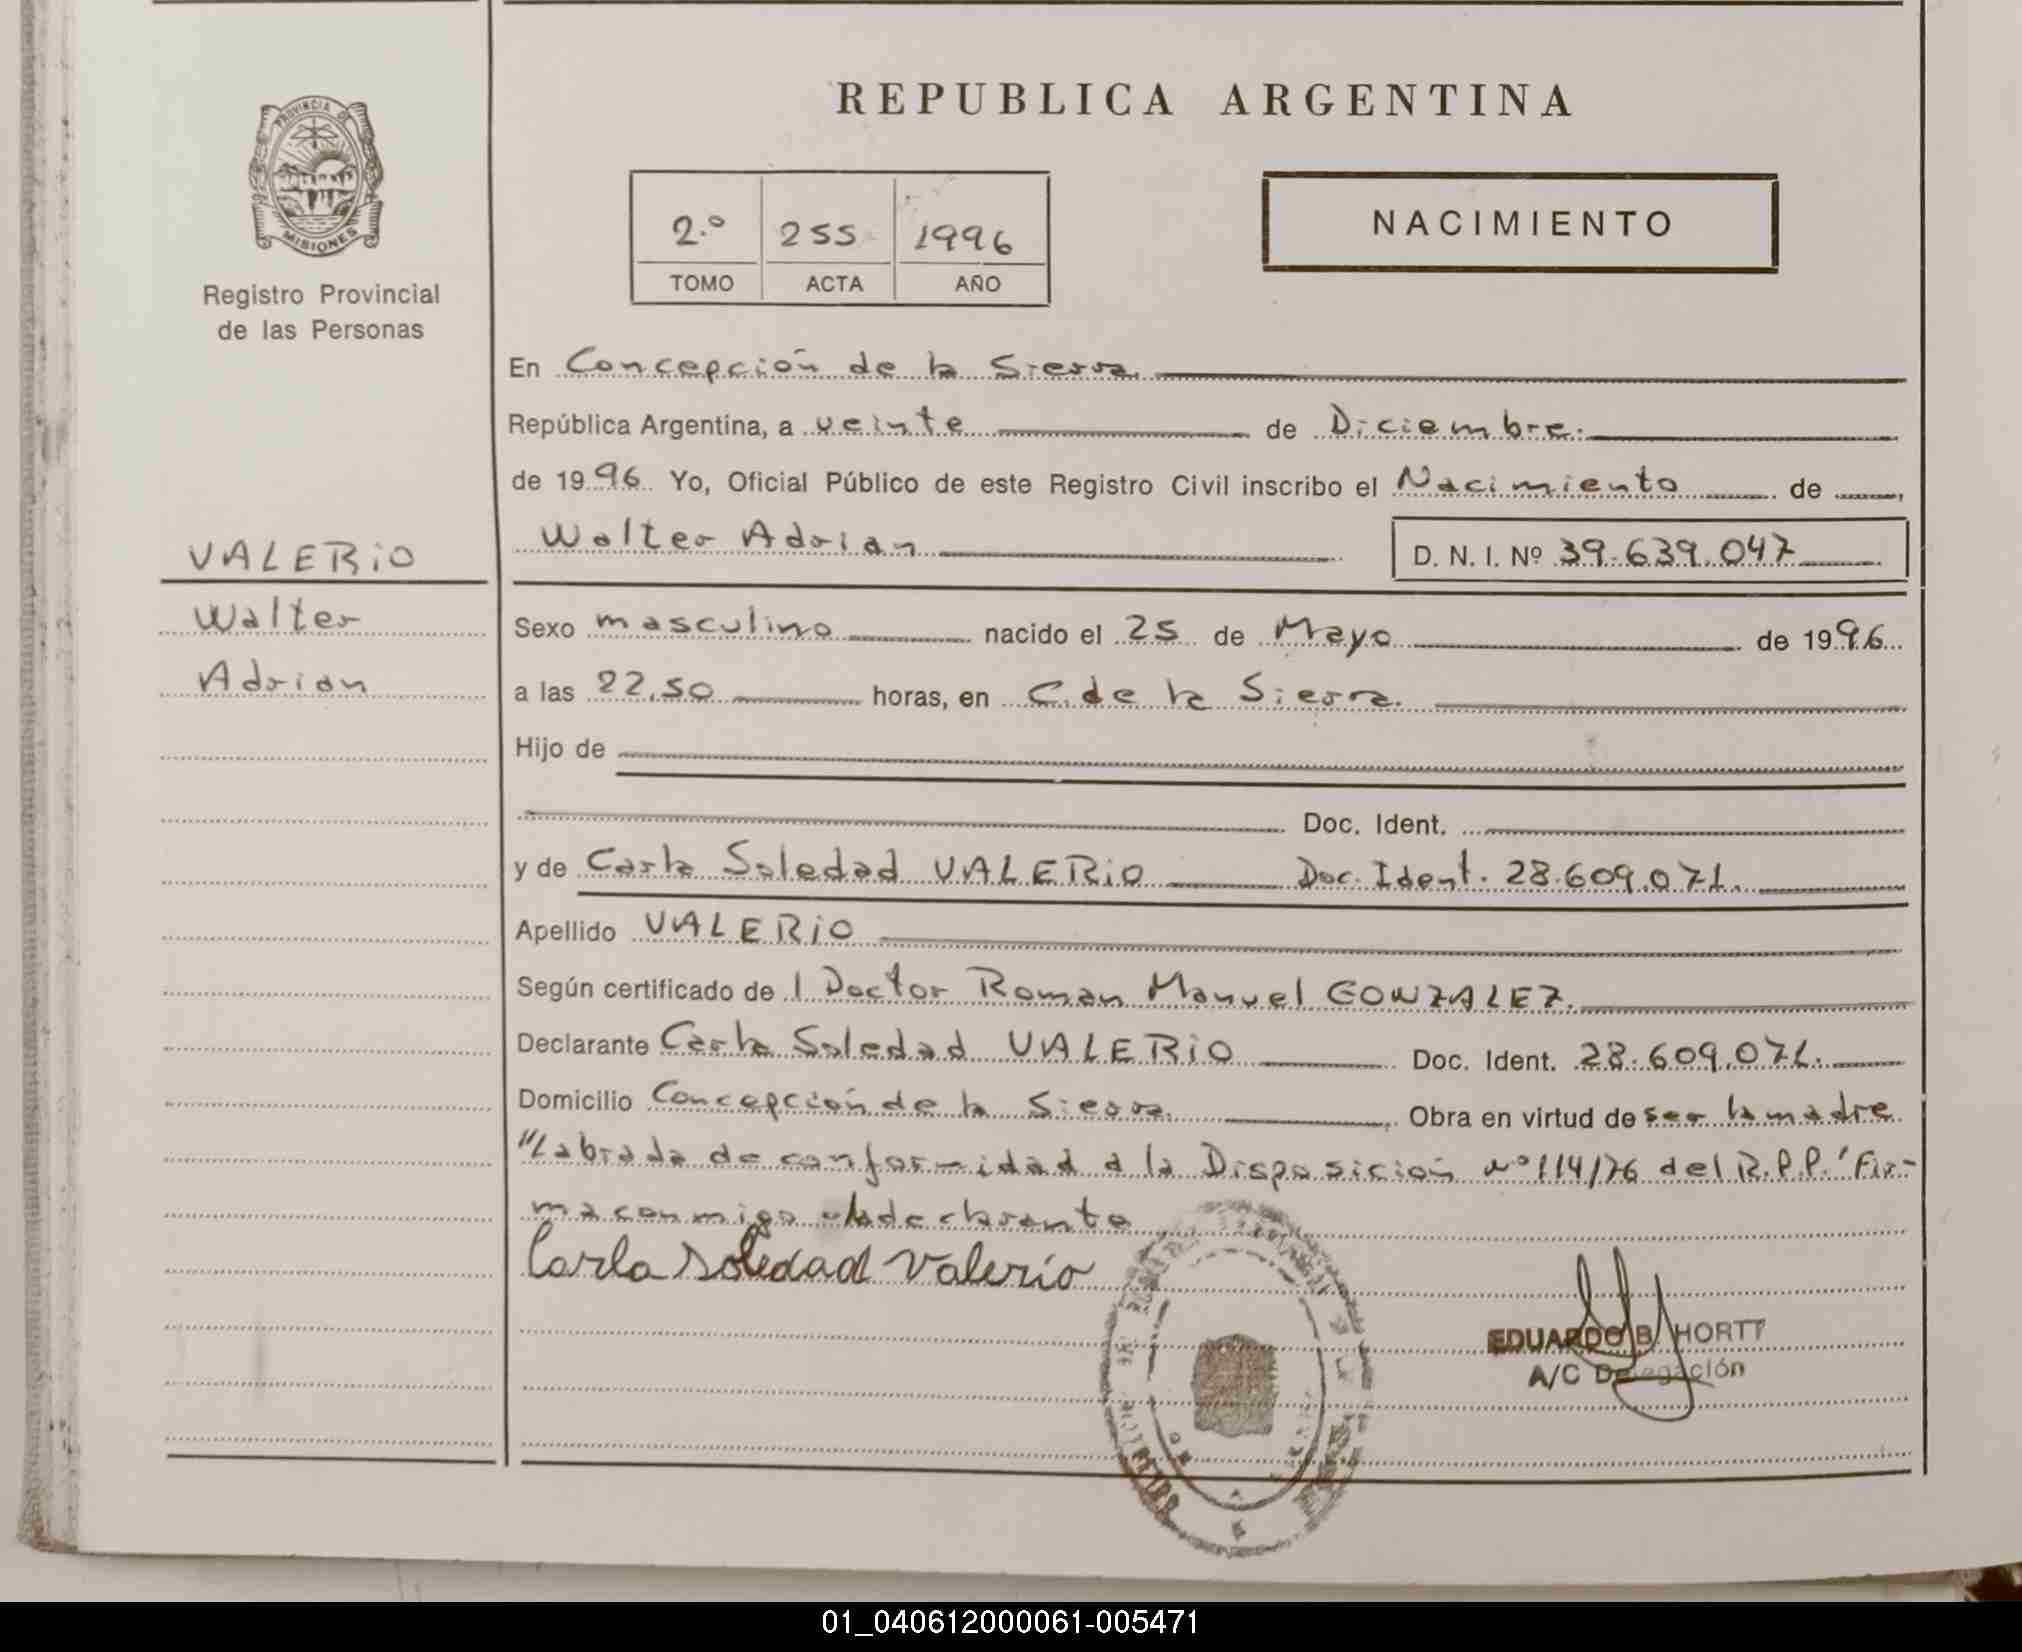 REPUBLICA ARGENTINA
PROVINCIA DE
MISIONES
Registro Provincial
de las Personas
2.º 255 1996
TOMO ACTA AÑO
NACIMIENTO
En Concepción de la Sierra.
República Argentina, a veinte de Diciembre.
de 1996 Yo, Oficial Público de este Registro Civil inscribo el Nacimiento de
Walter Adrian D. N. I. Nº 39.639.047
VALERiO
Walter
Adrian
Sexo masculino nacido el 25 de Mayo de 1996
a las 22.50 horas, en C. de la Sierra.
Hijo de
Doc. Ident.
y de Carla Soledad VALERiO Doc. Ident. 28.609.071.
Apellido VALERiO
Según certificado de l Doctor Roman Manuel GONZALEZ.
Declarante Carla Soledad VALERiO Doc. Ident. 28.609.071.
Domicilio Concepción de la Sierra. Obra en virtud de ser la madre
"Labrada de conformidad a la Disposición Nº 114/76 del R.P.P." Fir-
ma conmigo la declarante
Carla Soledad Valerio
EDUARDO B. HORTT
A/C Delegación
01_040612000061-005471